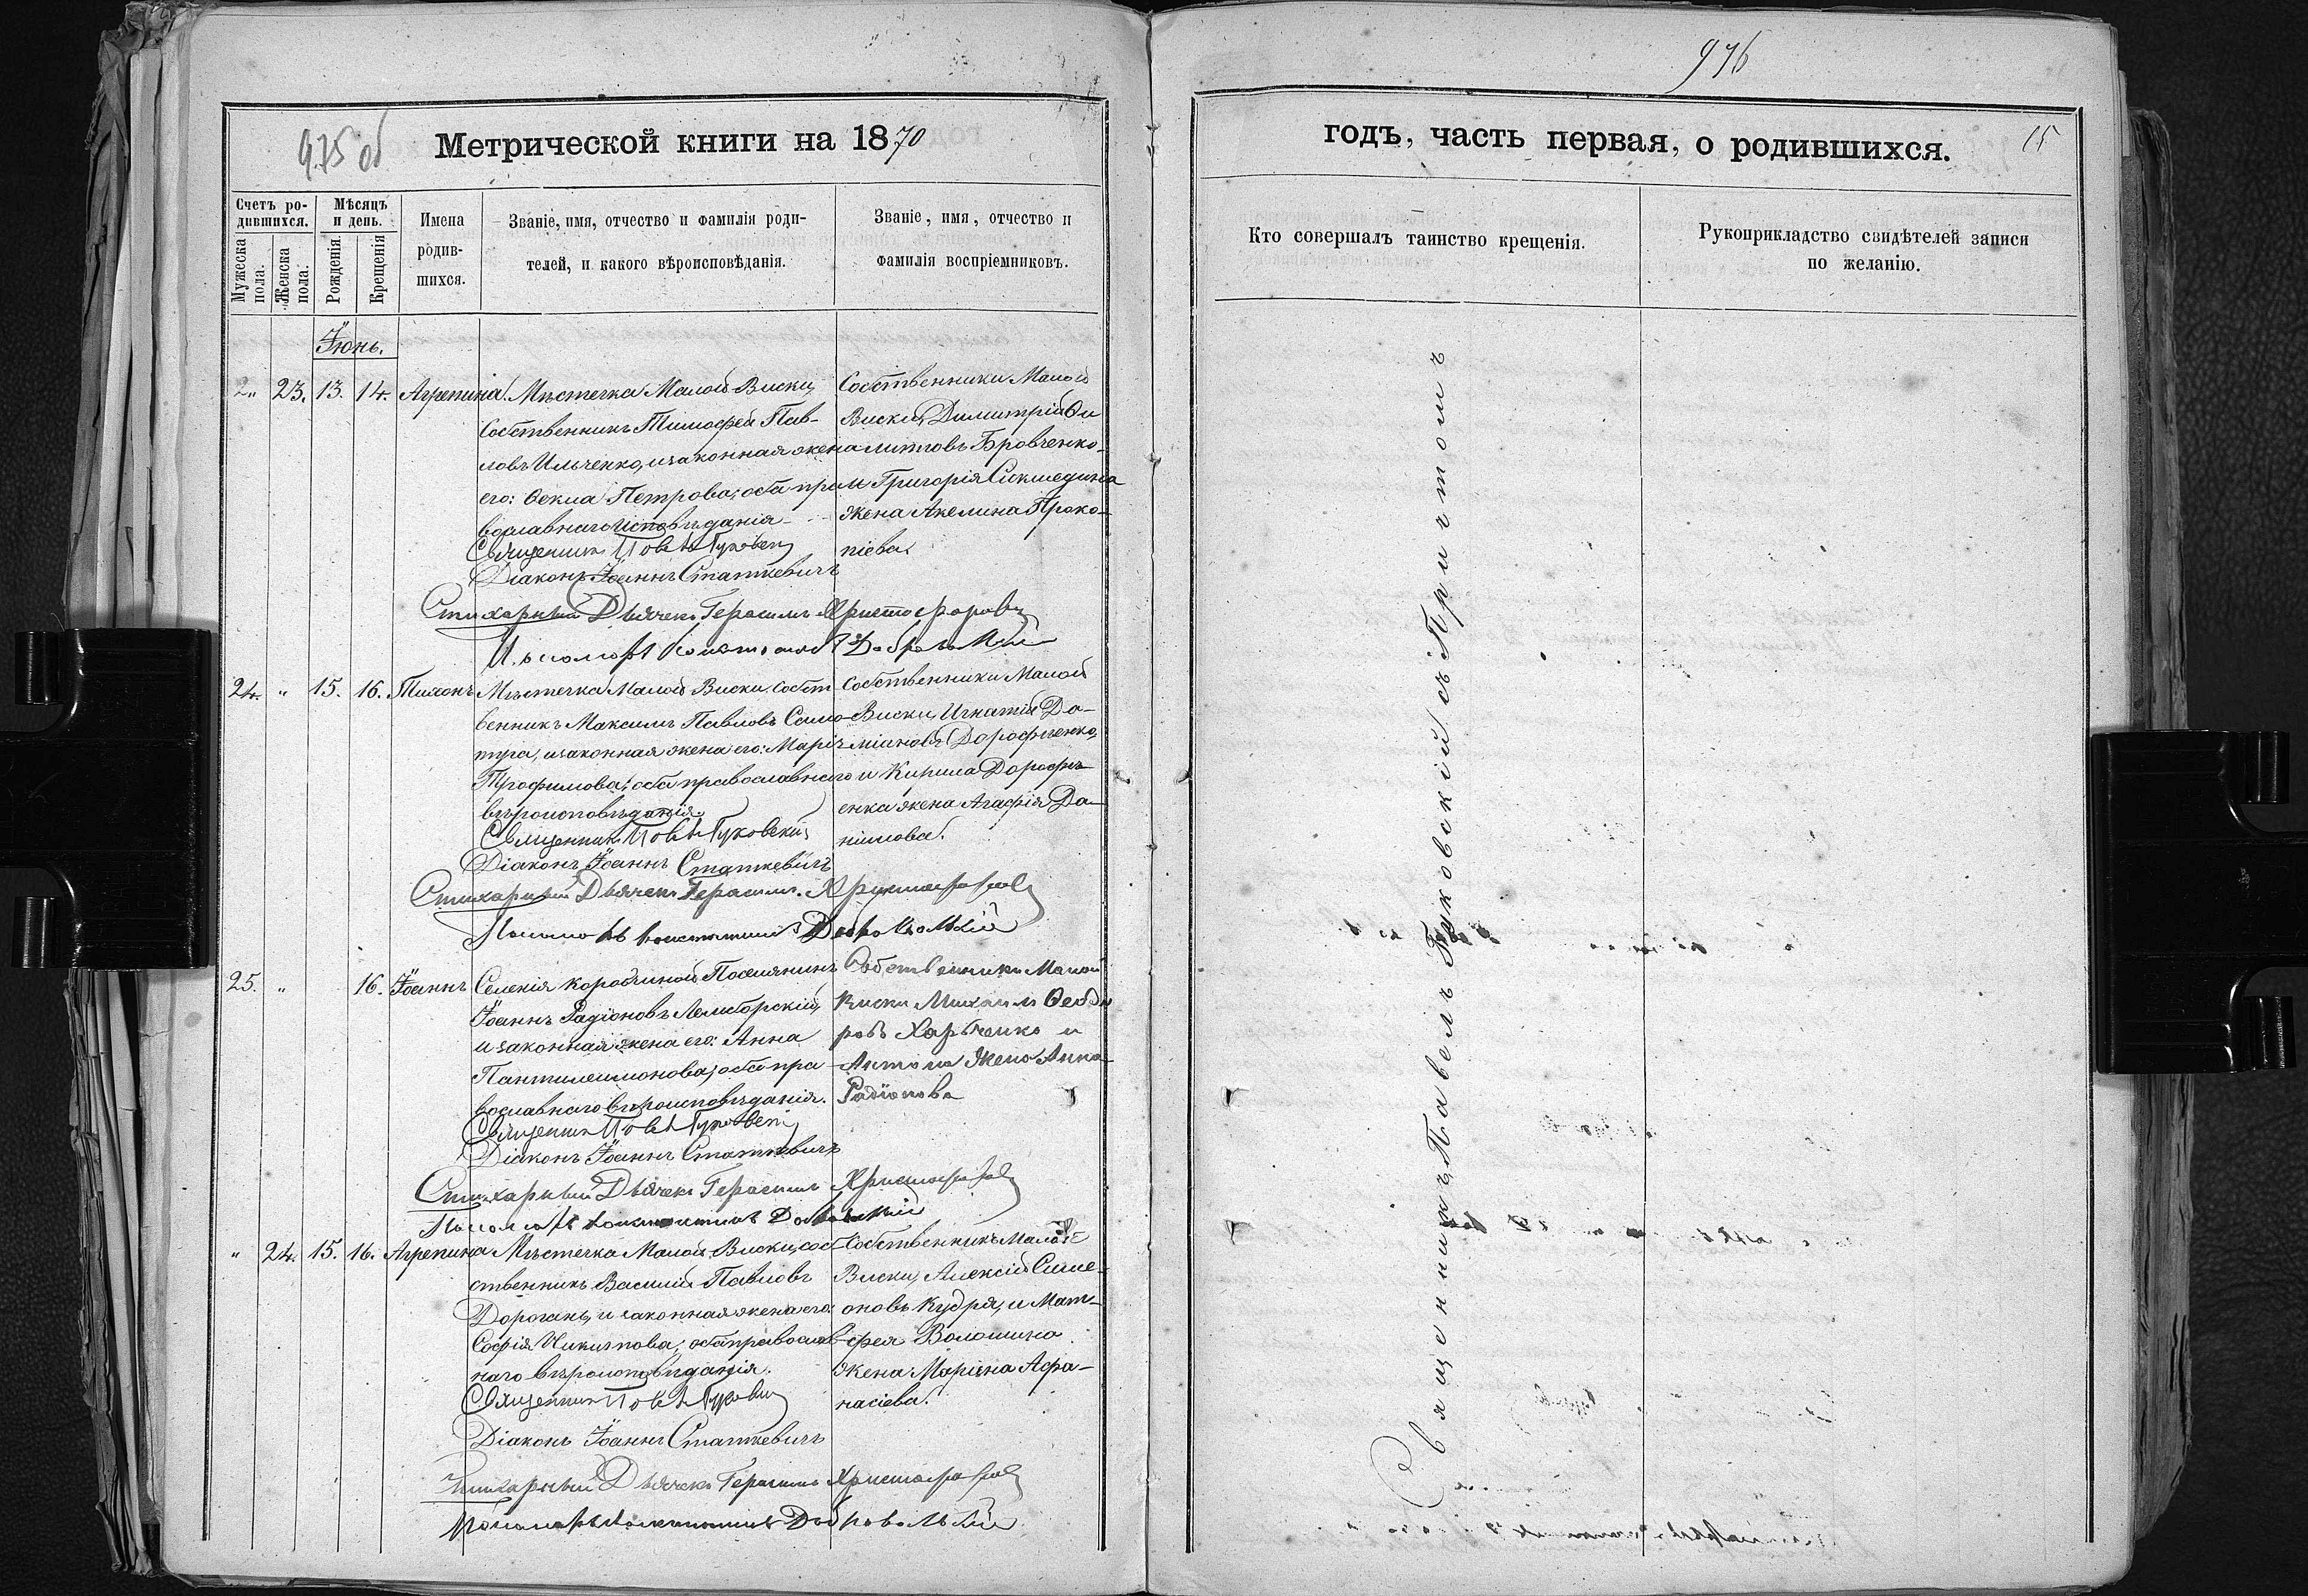 975 об
Метрической книги на 1870
Счетъ ро-
дившихся.
Мѣсяцъ
и день.
Мужеска
пола.
Женска
пола.
Рожденія.
Крещенія
Имена
родив-
шихся.
Званіе, имя, отчество и фамилія роди-
телей, и какого вѣроисповѣданія.
Званіе, имя, отчество и
фамилія воспріемниковъ.
Іюнь.
" 23. 13. 14. Агрепина.
Мѣстечка Малой Виски,
Собственникъ Тимофей Пав-
ловъ Ильченко, и законная жена
его: Ѳекла Петрова; оба пра-
вославнаго исповѣданія
Священник Павел Гуковскій
Діаконъ Іоаннъ Статкевичъ
Стихарный Дьячекъ Герасимъ Христофоровъ
Пономарь Константинъ Добровольскій
Собственники Малой
Виски, Димитрій Фи
липповъ Бровченко
и Григорія
жена Акелина Проко-
піева.
24. " 15. 16. Тихонъ
Мѣстечка Малой Виски собст
венникъ Максимъ Павловъ Само-
туга, и законная жена его: Марія
Трофимова; оба православнаго
вѣроисповѣданія
Священник Павел Гуковскій
Діаконъ Іоаннъ Статкевичъ
Стихарный Дьячекъ Герасимъ Христофоровъ
Пономарь Константинъ Добровольскій
Собственники Малой
Виски, Игнатій Да-
міановъ Дорофѣенко,
и Кирила Дорофѣ
енка жена Агафія Да-
ніилова.
25. " 16. Іоаннъ
Селенія Коробчиной Поселянинъ
Іоаннъ Радіоновъ
и законная жена его: Анна
Пантилеимонова; оба пра
вославнаго вѣроисповѣданія.
Священник Павел Гуковскій
Діаконъ Іоаннъ Статкевичъ
Стихарный Дьячекъ Герасимъ Христофоровъ
Пономарь Константинъ Добровольскій
Собственники Малой
Виски Михаилъ Ѳеодо
ровъ Харченко и
Антона жена Анна
Радіонова
" 24. 15. 16. Агрепина
Мѣстечка Малой Виски, соб-
ственникъ Василій Павловъ
Дорогань, и законная жена его:
Софія Никитова; оба православ-
наго вѣроисповѣданія.
Священник Павел Гуковскій
Діаконъ Іоаннъ Статкевичъ
Стихарный Дьячекъ Герасимъ Христофоровъ
Пономарь Константинъ Добровольскій
Собственникъ Малой
Виски, Алексій Симе-
оновъ Кудря, и Мат-
фея Волошина
жена Маріна Афа-
насіева.
976
годъ, часть первая, о родившихся.
15
Кто совершалъ таинство крещенія.
Рукоприкладство свидѣтелей записи
по желанію.
Священникъ Павелъ Гуковскій съ Причтомъ